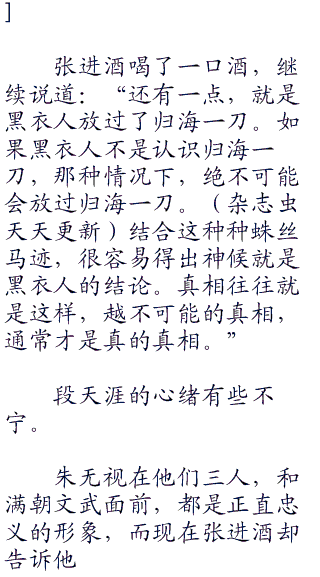 ]
张进酒喝了一口酒，继
续说道：“还有一点，就是
黑衣人放过了归海一刀。如
果黑衣人不是认识归海一
刀，那种情况下，绝不可能
会放过归海一刀。（杂志虫
天天更新）结合这种种蛛丝
马迹，很容易得出神候就是
黑衣人的结论。真相往往就
是这样，越不可能的真相，
通常才是真的真相。”
段天涯的心绪有些不
宁。
朱无视在他们三人，和
满朝文武面前，都是正直忠
义的形象，而现在张进酒却
告诉他